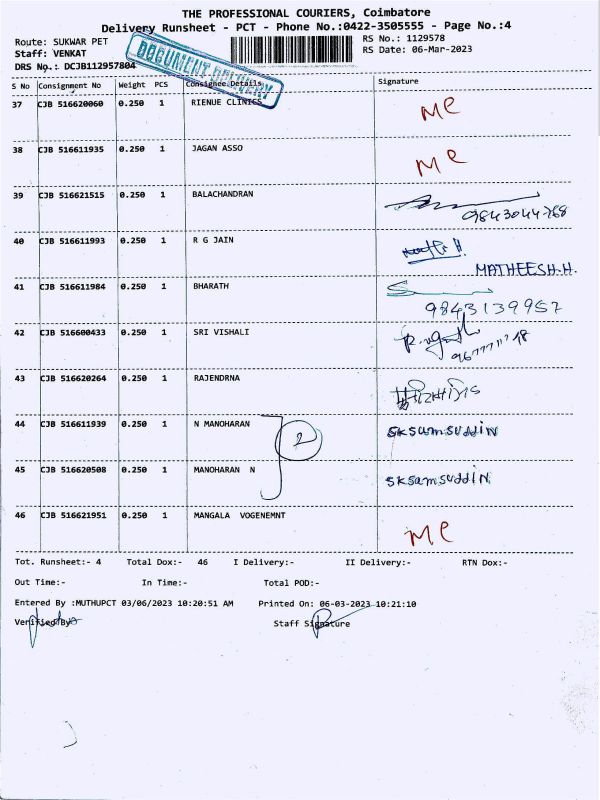 THE PROFESSIONAL COURIERS, Coimbatore
Delivery Runsheet - PCT - Phone No.:0422-3505555 - Page No.:4
Route: SUKWAR PET RS No.: 1129578
Staff: VENKAT RS Date: 06-Mar-2023
DRS No.: DCJB112957804
DOCUMENT DELIVERY
S No Consignment No Weight PCS Consignee Details Signature
37 CJB 516620060 0.250 1 RIENUE CLINICS Me
38 CJB 516611935 0.250 1 JAGAN ASSO Me
39 CJB 516621515 0.250 1 BALACHANDRAN
9843044768
40 CJB 516611993 0.250 1 R G JAIN
MATHEESH.H.
41 CJB 516611984 0.250 1 BHARATH
9843139957
42 CJB 516600433 0.250 1 SRI VISHALI
43 CJB 516620264 0.250 1 RAJENDRNA
44 CJB 516611939 0.250 1 N MANOHARAN SKSamSuddiN
2
45 CJB 516620508 0.250 1 MANOHARAN N SKSamSuddiN
46 CJB 516621951 0.250 1 MANGALA VOGENEMNT Me
Tot. Runsheet:- 4 Total Dox:- 46 I Delivery:- II Delivery:- RTN Dox:-
Out Time:- In Time:- Total POD:-
Entered By :MUTHUPCT 03/06/2023 10:20:51 AM Printed On: 06-03-2023 10:21:10
Verified By Staff Signature